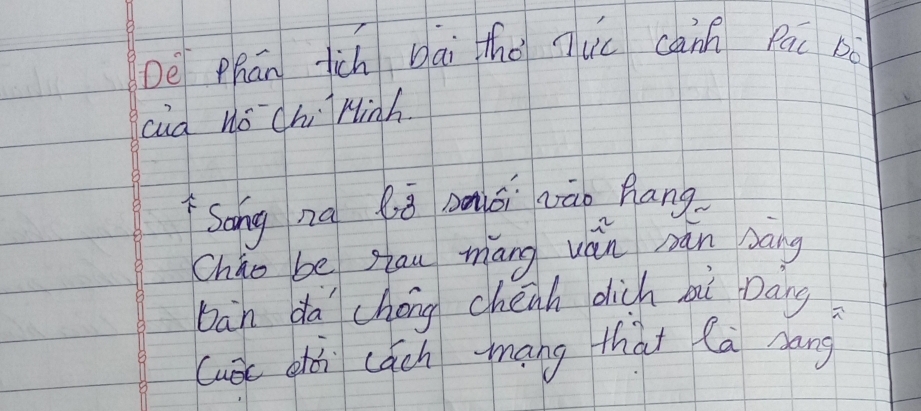 Đề phân tích bài thơ Tức cảnh Pác bó
của Hồ Chí Minh.
* Sáng ra bờ suối vào hang
Cháo be rau măng vẫn sẵn sàng
bàn đá chông chênh dịch sử Đảng
Cuộc đời cách mạng thật là sang